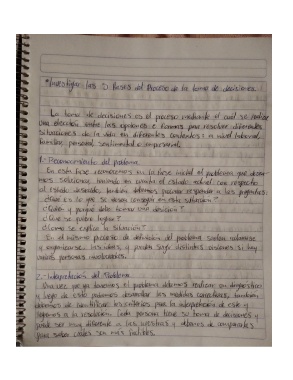 *Investigar las 5 Fases del Proceso de la toma de decisiones.
La toma de decisiones es el proceso mediante el cual se realiza
una elección entre las opciones o formas para resolver diferentes
situaciones de la vida en diferentes contextos: a nivel laboral,
familiar, personal, sentimental o empresarial.
1.- Reconocimiento del problema
En esta fase reconocemos en la fase inicial el problema que
solucionar, teniendo en cuenta el estado actual con respecto
al estado deseado, también debemos responder a las preguntas:
¿Qué es lo que se desea conseguir en esta situación?
¿Quién y porque debe tomar una decisión?
¿Qué se quiere lograr?
¿Cómo se explica la situación?
En el mismo proceso de definición del problema suelen
las ideas, y pueden surgir distintas si hay
varias personas involucradas.
2.- Interpretación del Problema
Una vez que ya tenemos el problema debemos realizar un diagnóstico
y luego de esto podremos desarrollar las medidas correctivas, también
debemos de los criterios para la interpretación de este y
la resolución. Cada persona tiene su toma de decisiones y
puede ser muy diferente a las nuestras y
para saber cuales son más factibles.